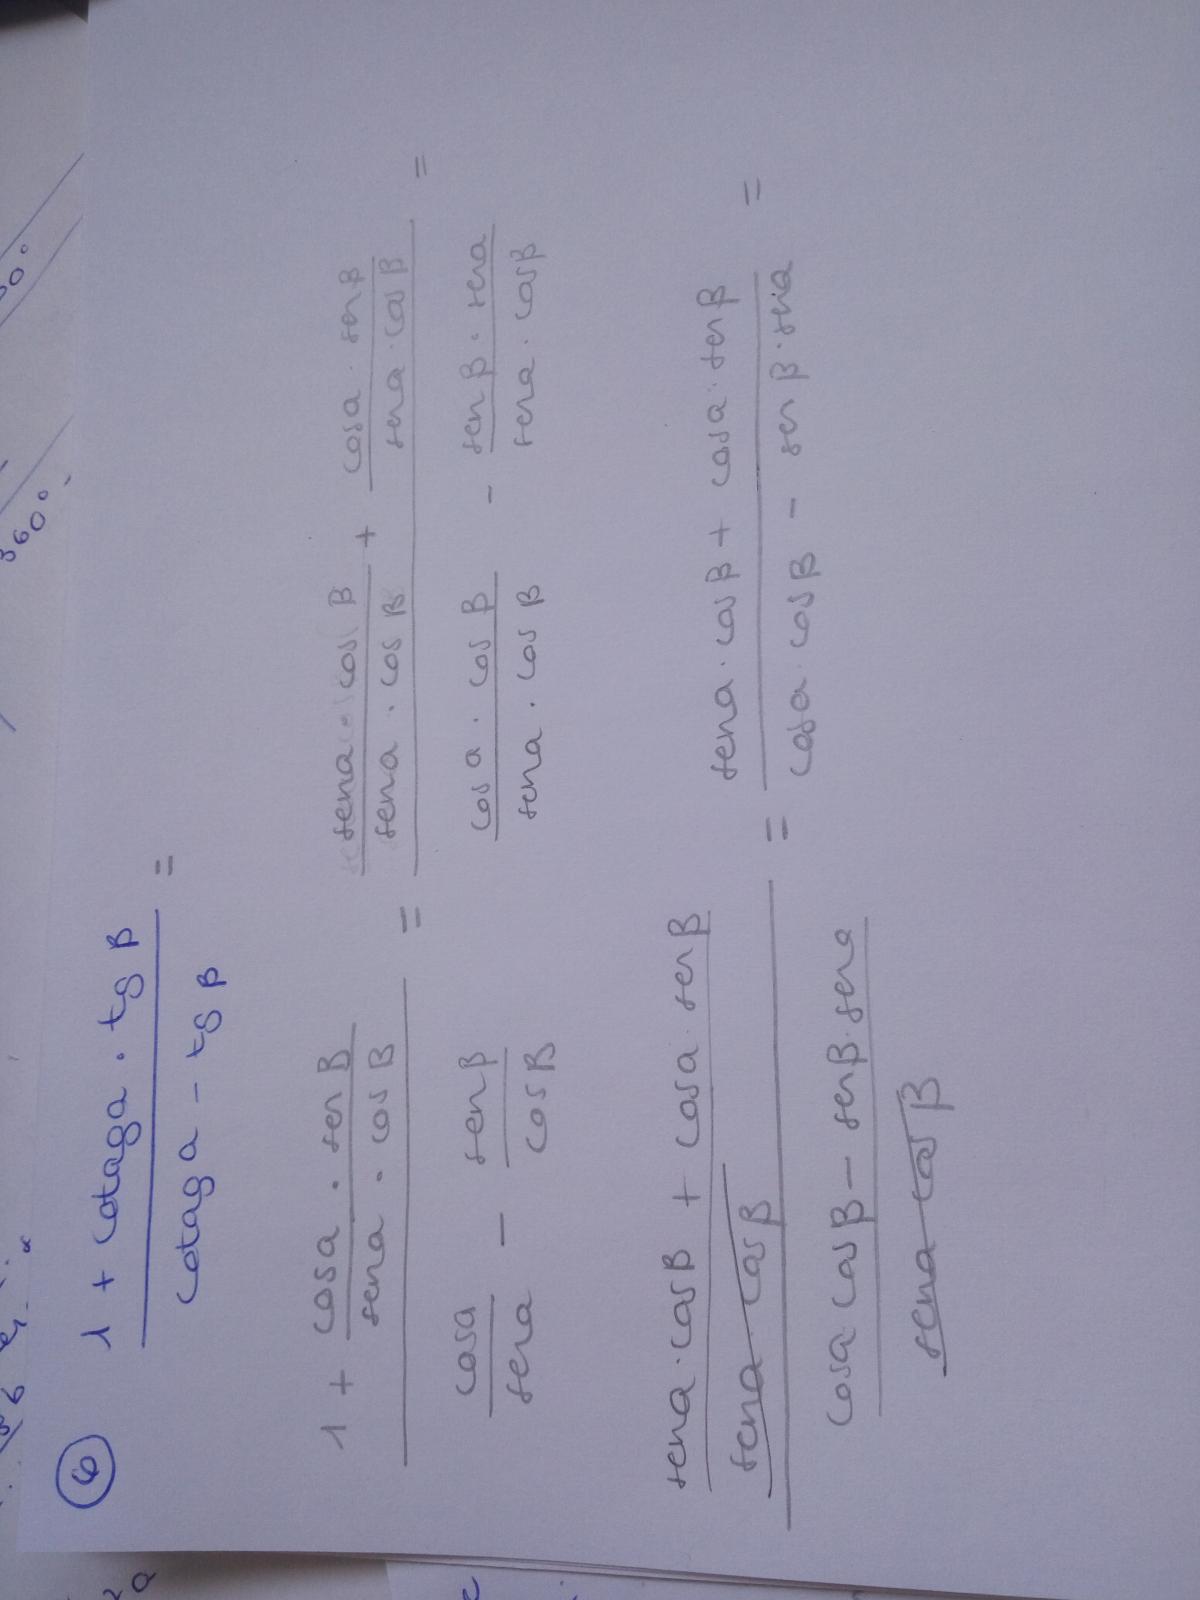 6
1 + cotaga . tg β
cotag a - tg β
=
1 + cosa . sen β
sena . cos β
cosa
sena
-
sen β
cos β
=
sena cos β
sena . cos β
+
cosa . sen β
sena . cos β
cos a . cos β
sena . cos β
-
sen β . sena
sena . cos β
=
sena . cos β + cosa . sen β
sena . cos β
cosa cos β - sen β . sena
sena cos β
=
sena . cos β + cosa . sen β
cosa . cos β - sen β . sena
=
360°